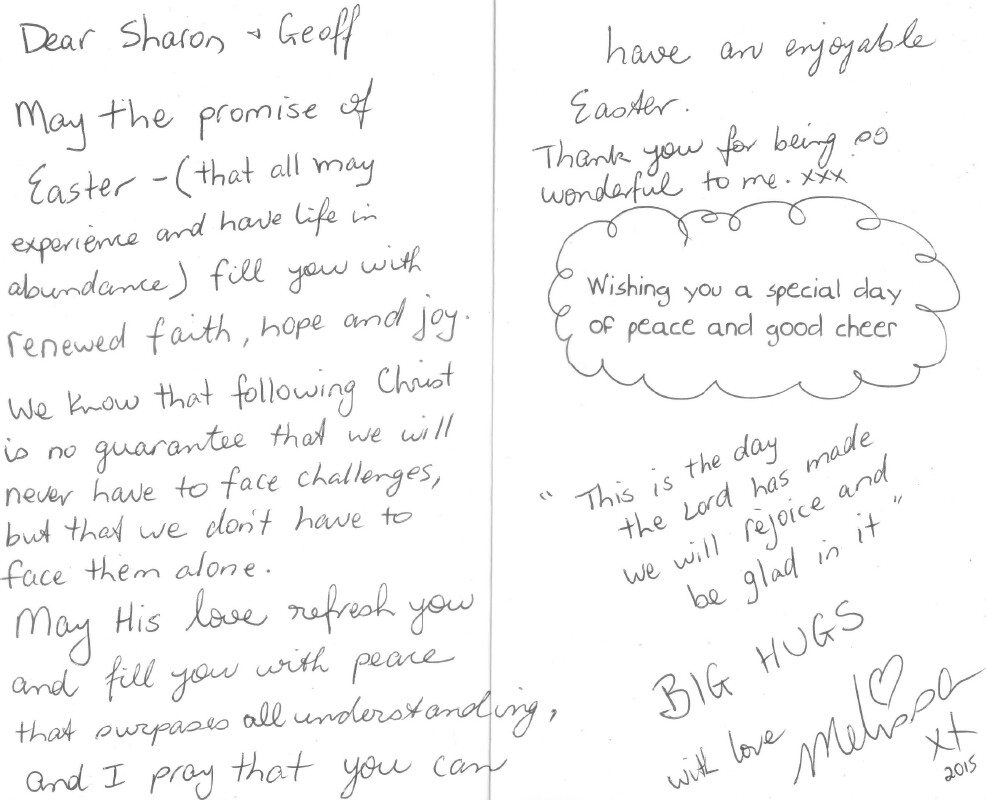 Dear Sharon + Geoff
May the promise of
Easter - (that all may
experience and have life in
abundance) fill you with
renewed faith, hope and joy.
We know that following Christ
is no guarantee that we will
never have to face challenges,
but that we don't have to
face them alone.
May His love refresh you
and fill you with peace
that surpases all understanding,
and I pray that you can
have an enjoyable
Easter.
Thank you for being so
wonderful to me. xxx
Wishing you a special day
of peace and good cheer
"This is the day
the Lord has made
we will rejoice and
be glad in it"
BIG HUGS
with love Melissa
x+
2015